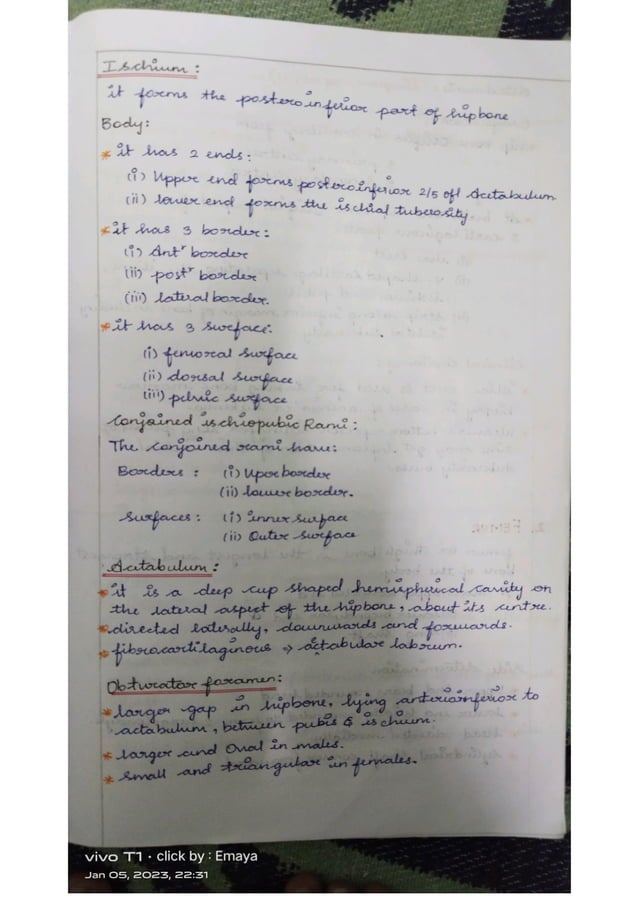 Ischium:
it forms the posteroinferior part of hipbone
Body:
* it has 2 ends:
(i) Upper end forms posteroinferior 2/5 ofl Acetabulum
(ii) lower end forms the ischial tuberosity
* it has 3 border:
(i) Antʳ border
(ii) postʳ border
(iii) lateral border.
* it has 3 surface:
(i) femoral surface
(ii) dorsal surface
(iii) pelvic surface
Conjoined ischiopubic Rami:
The conjoined rami have:
Borders : (i) Uper border
(ii) lower border.
Surfaces : (i) inner surface
(ii) Outer surface
Acetabulum:
* it is a deep cup shaped hemispherical cavity on
the lateral aspect of the hipbone, about its centre.
* directed laterally, downwards and forwards.
* fibrocartilaginous ⇒ actabular labrum.
Obturator foramen:
* larger gap in hipbone, lying anterioinferior to
actabulum, between pubis & ischium.
* larger and Oval in males.
* small and triangular in females.
vivo T1 · click by : Emaya
Jan 05, 2023, 22:31